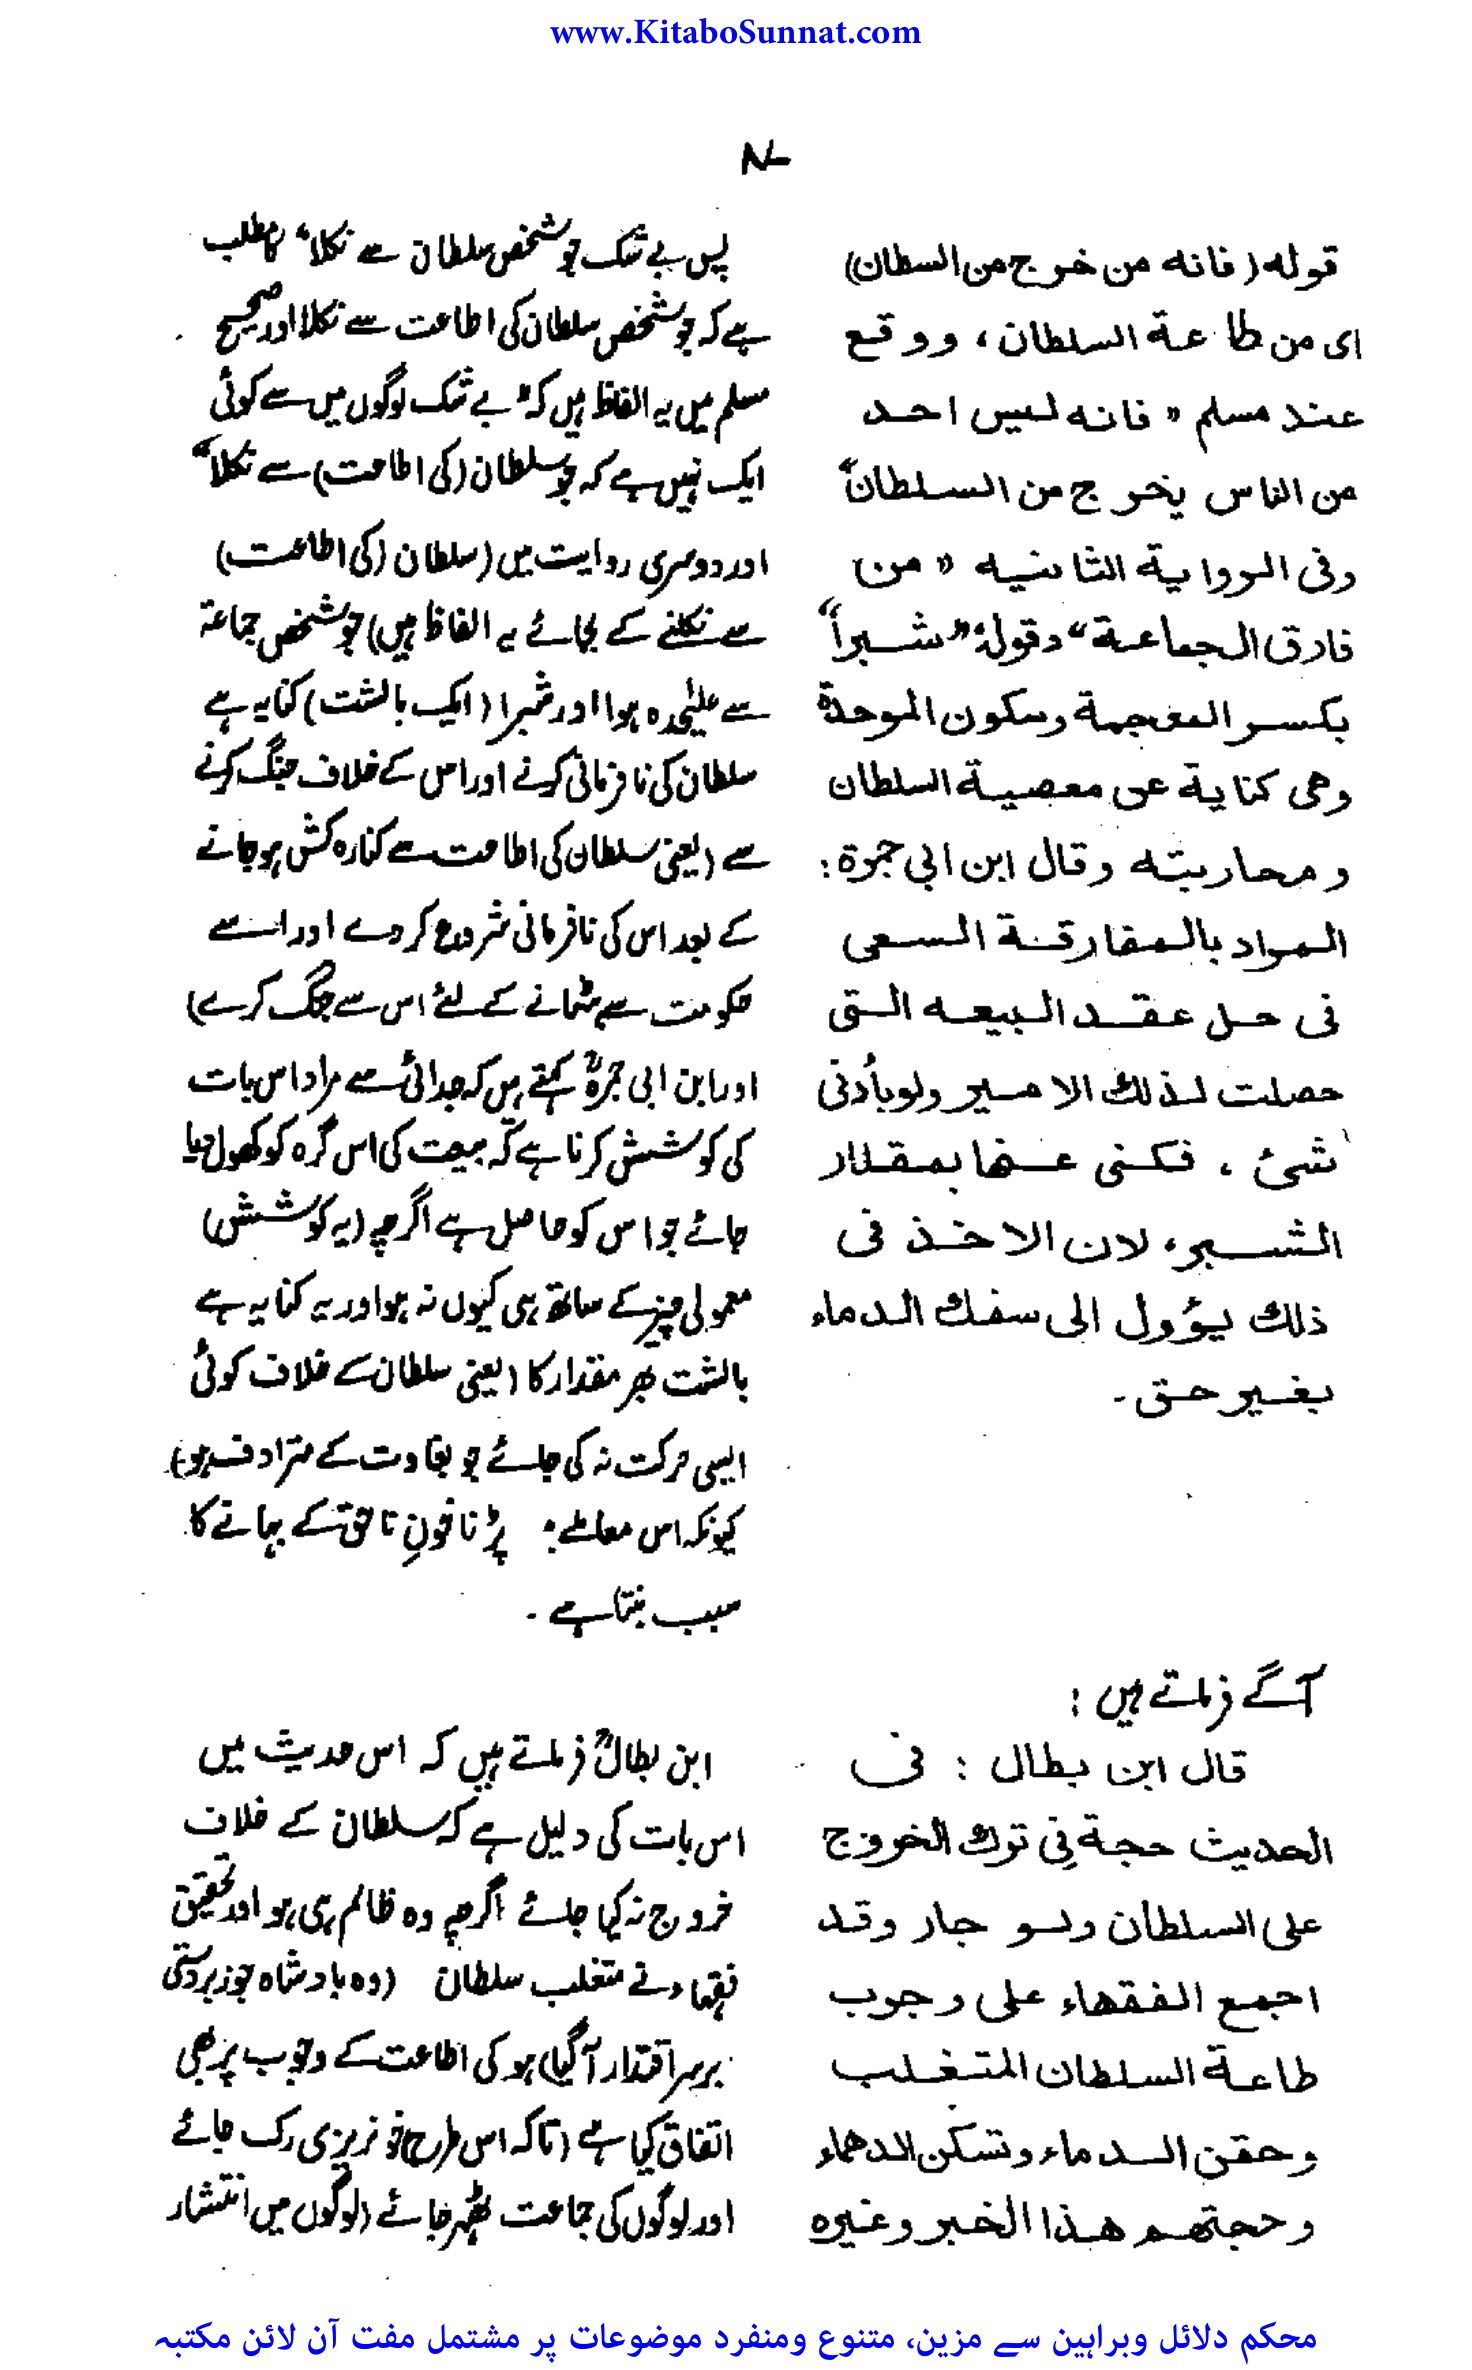 www.KitaboSunnat.com
قوله (فانه من خرج من السطان)
ای من طاعة السلطان، ووقع
عند مسلم " فانه ليس احد
من الناس يخرج من السلطان"
وفى الرواية الثانيه " من
فارق الجماعة" وقوله "شبراً"
بكسر المعجمة وسكون الموحدة
وهی كناية عن معصية السلطان
ومحاربته وقال ابن ابي جمرة :
المراد بالمفارقة السعی
فی حل عقد البيعه التی
حصلت لذلك الامير ولو بأدنی
شئ ، فكنی عنها بمقدار
الشبر، لان الاخذ فی
ذلك يؤول الی سفك الدماء
بغير حق ۔
پس بے شک جو شخص سلطان سے نکلا" کا مطلب
ہے کہ جو شخص سلطان کی اطاعت سے نکلا اور صحیح
مسلم میں یہ الفاظ ہیں کہ "بے شک لوگوں میں سے کوئی
ایک نہیں ہے کہ جو سلطان (کی اطاعت) سے نکلا"
اور دوسری روایت میں (سلطان (کی اطاعت)
سے نکلنے کے بجائے یہ الفاظ ہیں) جو شخص جماعة
سے علیٰحدہ ہوا اور شبرا (ایک بالشت) کنایہ ہے
سلطان کی نافرمانی کرنے اور اس کے خلاف جنگ کرنے
سے (یعنی سلطان کی اطاعت سے کنارہ کش ہو جانے
کے بعد اس کی نافرمانی شروع کر دے اور اسے
حکومت سے ہٹانے کے لئے اس سے جنگ کرے)
اور ابن ابی جمرہؒ کہتے ہیں کہ جدائی سے مراد اس بات
کی کوشش کرنا ہے کہ بیعت کی اس گرہ کو کھول دیا
جائے جو اس کو حاصل ہے اگرچہ (یہ کوشش)
معمولی چیز کے ساتھ ہی کیوں نہ ہو اور یہ کنایہ ہے
بالشت بھر مقدار کا (یعنی سلطان کے خلاف کوئی
ایسی حرکت نہ کی جائے جو بغاوت کے مترادف ہو)
کیونکہ اس معاملے پڑنا خونِ ناحق کے بہانے کا
سبب بنتا ہے ۔
آگے فرماتے ہیں :
قال ابن بطال : فی
الحديث حجة فی ترك الخروج
علی السلطان ولو جار وقد
اجمع الفقهاء علی وجوب
طاعة السلطان المتغلب
وحقن الدماء وتسكن الدهماء
وحجتهم هذا الخبر وغيره
ابن بطالؒ فرماتے ہیں کہ اس حدیث میں
اس بات کی دلیل ہے کہ سلطان کے خلاف
خروج نہ کیا جائے اگرچہ وہ ظالم ہی ہو اور تحقیق
فقہاء نے متغلب سلطان (وہ بادشاہ جو زبردستی
برسراقتدار آگیا) ہو کی اطاعت کے وجوب پر بھی
اتفاق کیا ہے (تاکہ اس طرح خونریزی رک جائے
اور لوگوں کی جماعت ٹھہر جائے (لوگوں میں انتشار
محکم دلائل وبراہین سے مزین، متنوع ومنفرد موضوعات پر مشتمل مفت آن لائن مکتبہ